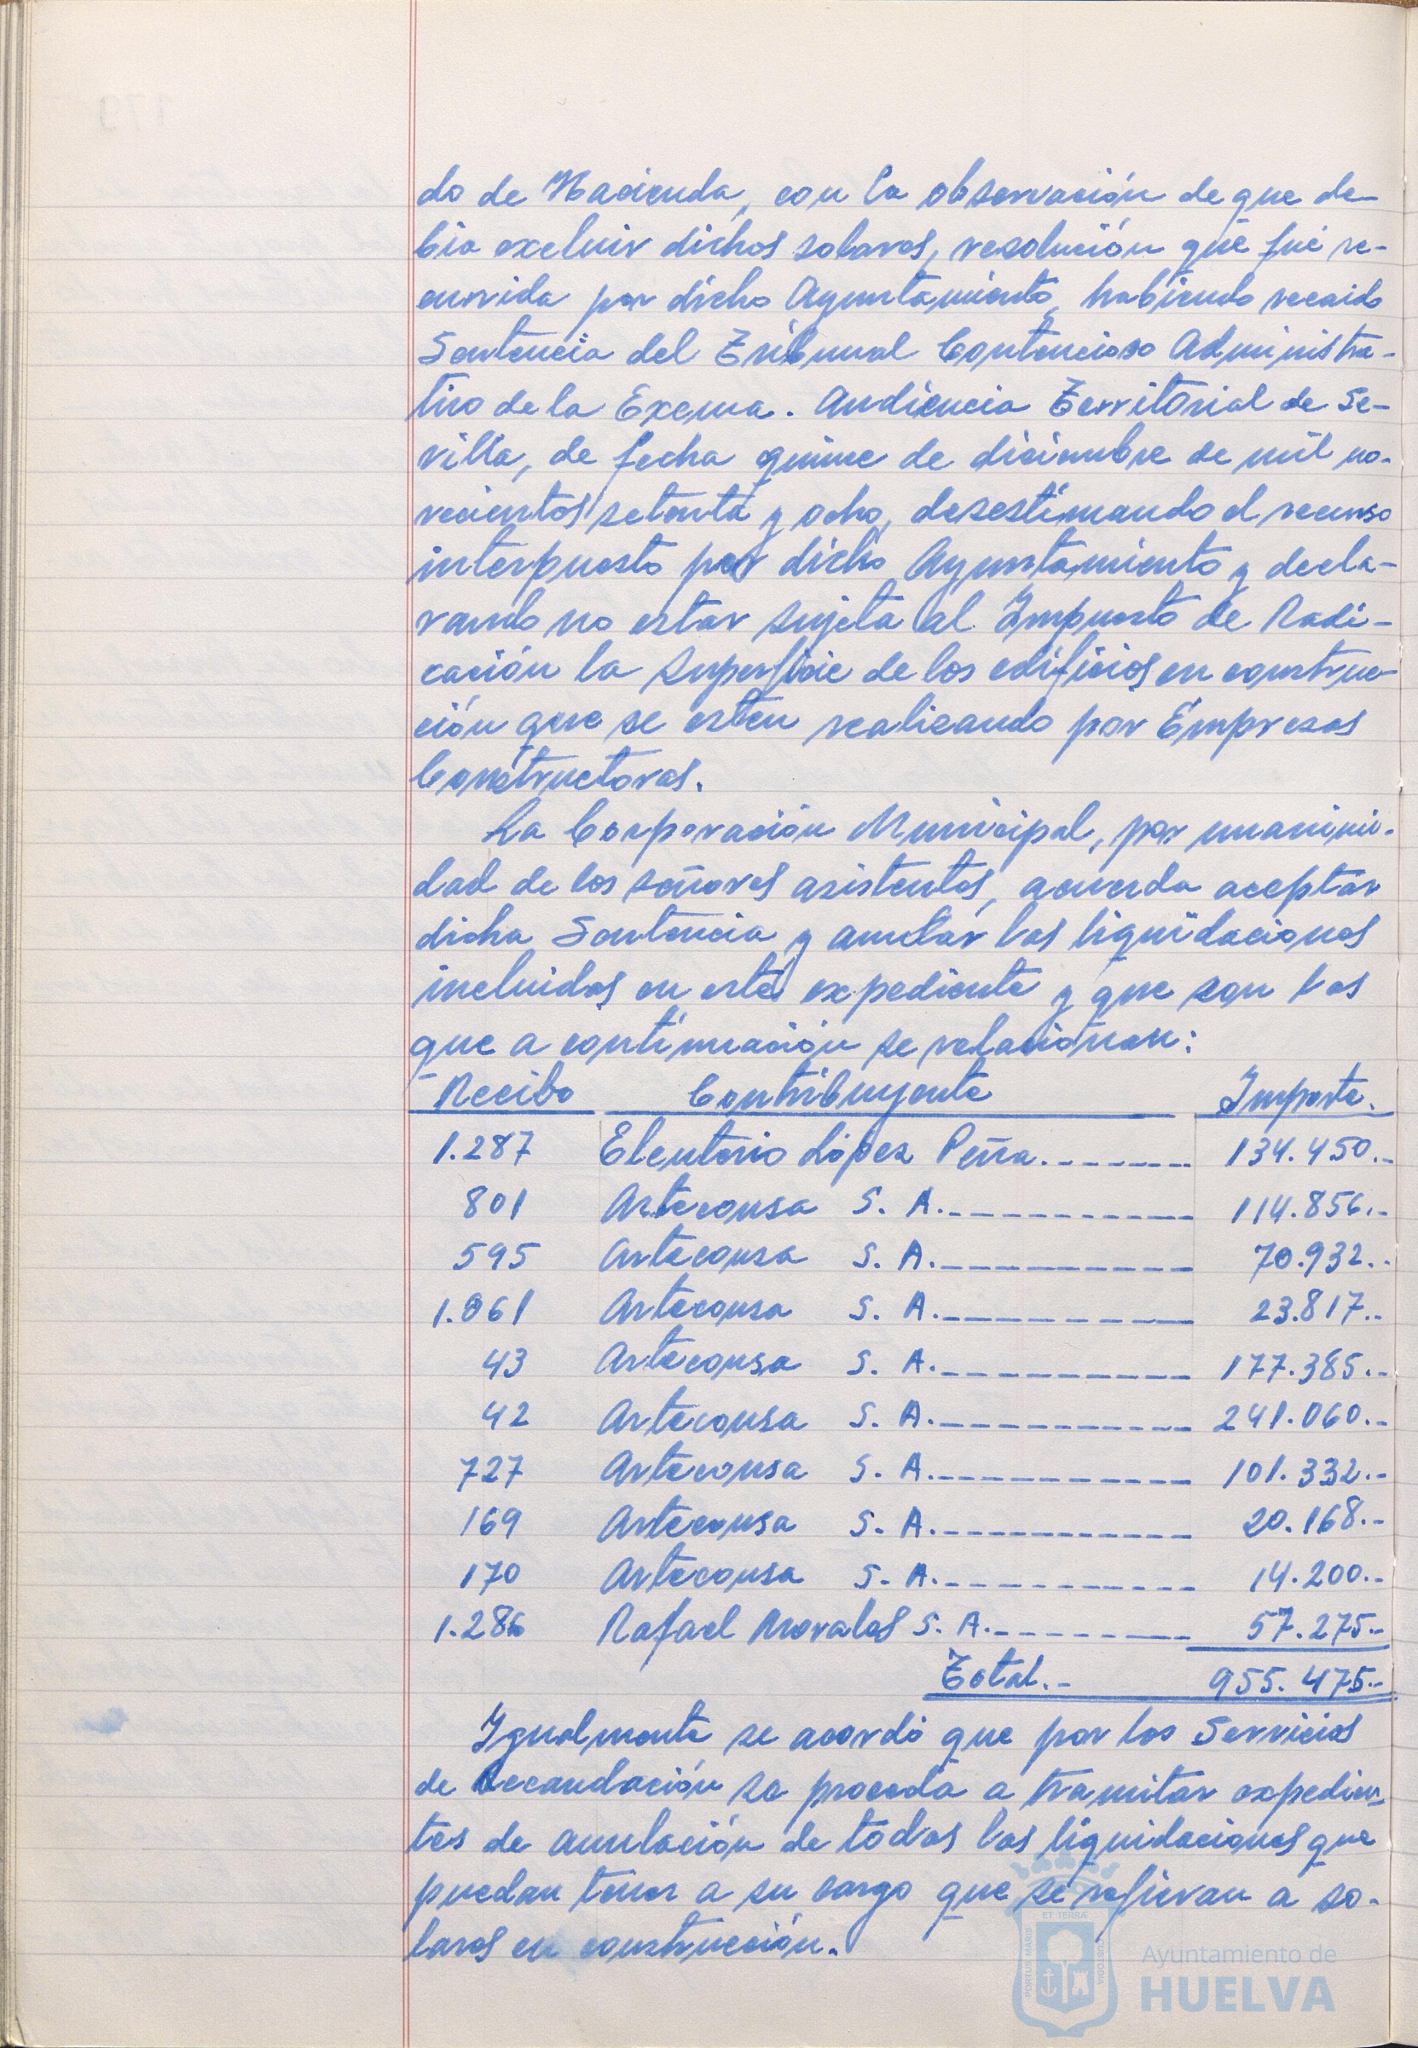 do de Hacienda, con la observación de que de-
bia excluir dichos solares, resolución que fué re-
currida por dicho Ayuntamiento, habiendo recaido
Sentencia del Tribunal Contencioso Administra-
tivo de la Excma. Audiencia Territorial de Se-
villa, de fecha quince de diciembre de mil no-
vecientos setenta y ocho, desestimando el recurso
interpuesto por dicho Ayuntamiento y decla-
rando no estar sujeta al Impuesto de Radi-
cación la superficie de los edificios en construc-
ción que se esten realizando por Empresas
Constructoras.
La Corporación Municipal, por unanimi-
dad de los señores asistentes, acuerda aceptar
dicha Sentencia y anular las liquidaciones
incluidas en este expediente y que son las
que a continuación se relacionan:
Recibo Contribuyente Importe.
1.287 Eleuterio López Peña.------- 134.450.-
801 Arteconsa S. A.----------- 114.856.-
595 Arteconsa S. A.----------- 70.932.-
1.061 Arteconsa S. A.----------- 23.817.-
43 Arteconsa S. A.----------- 177.385.-
42 Arteconsa S. A.----------- 241.060.-
727 Arteconsa S. A.----------- 101.332.-
169 Arteconsa S. A.----------- 20.168.-
170 Arteconsa S. A.----------- 14.200.-
1.286 Rafael Morales S. A.-------- 57.275.-
Total.- 955.475.-
Igualmente se acordó que por los Servicios
de Recaudación se proceda a tramitar expedien-
tes de anulación de todas las liquidaciones que
puedan tener a su cargo que se refieran a so-
lares en construcción.
PORTUS MARIS
ET TERRÆ
CUSTODIA
Ayuntamiento de
HUELVA